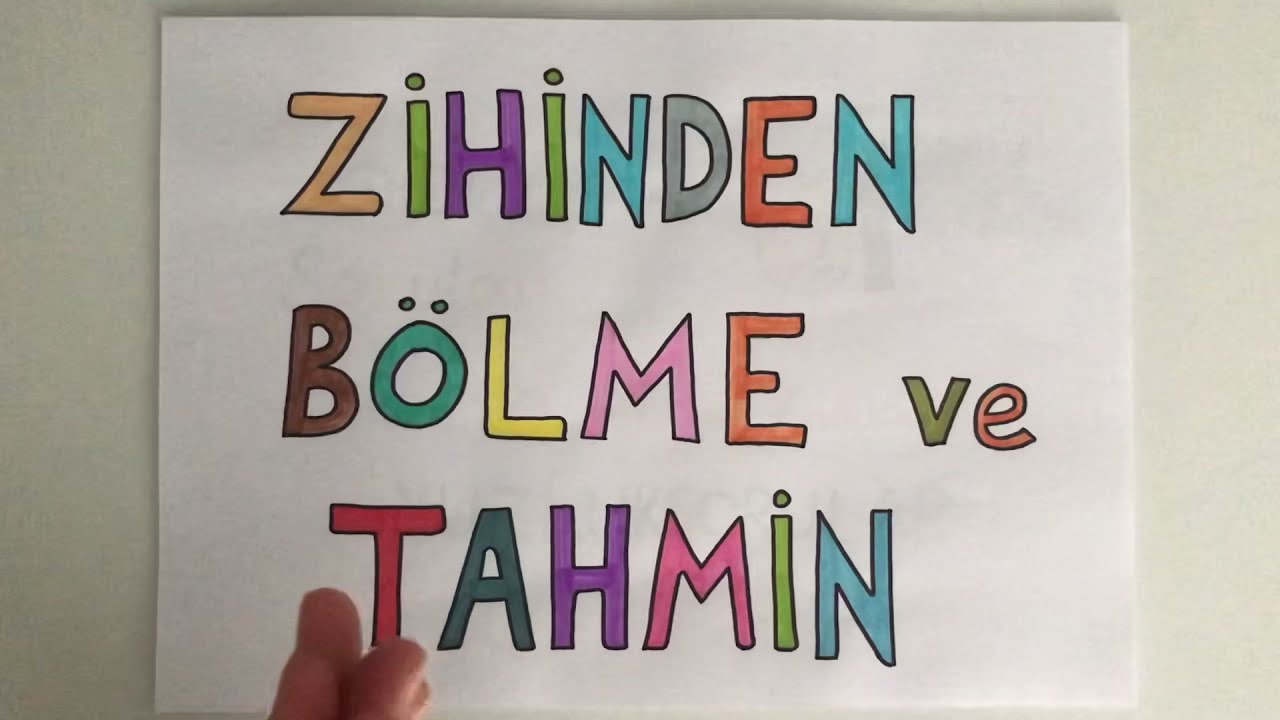 ZİHİNDEN
BÖLME ve
TAHMİN